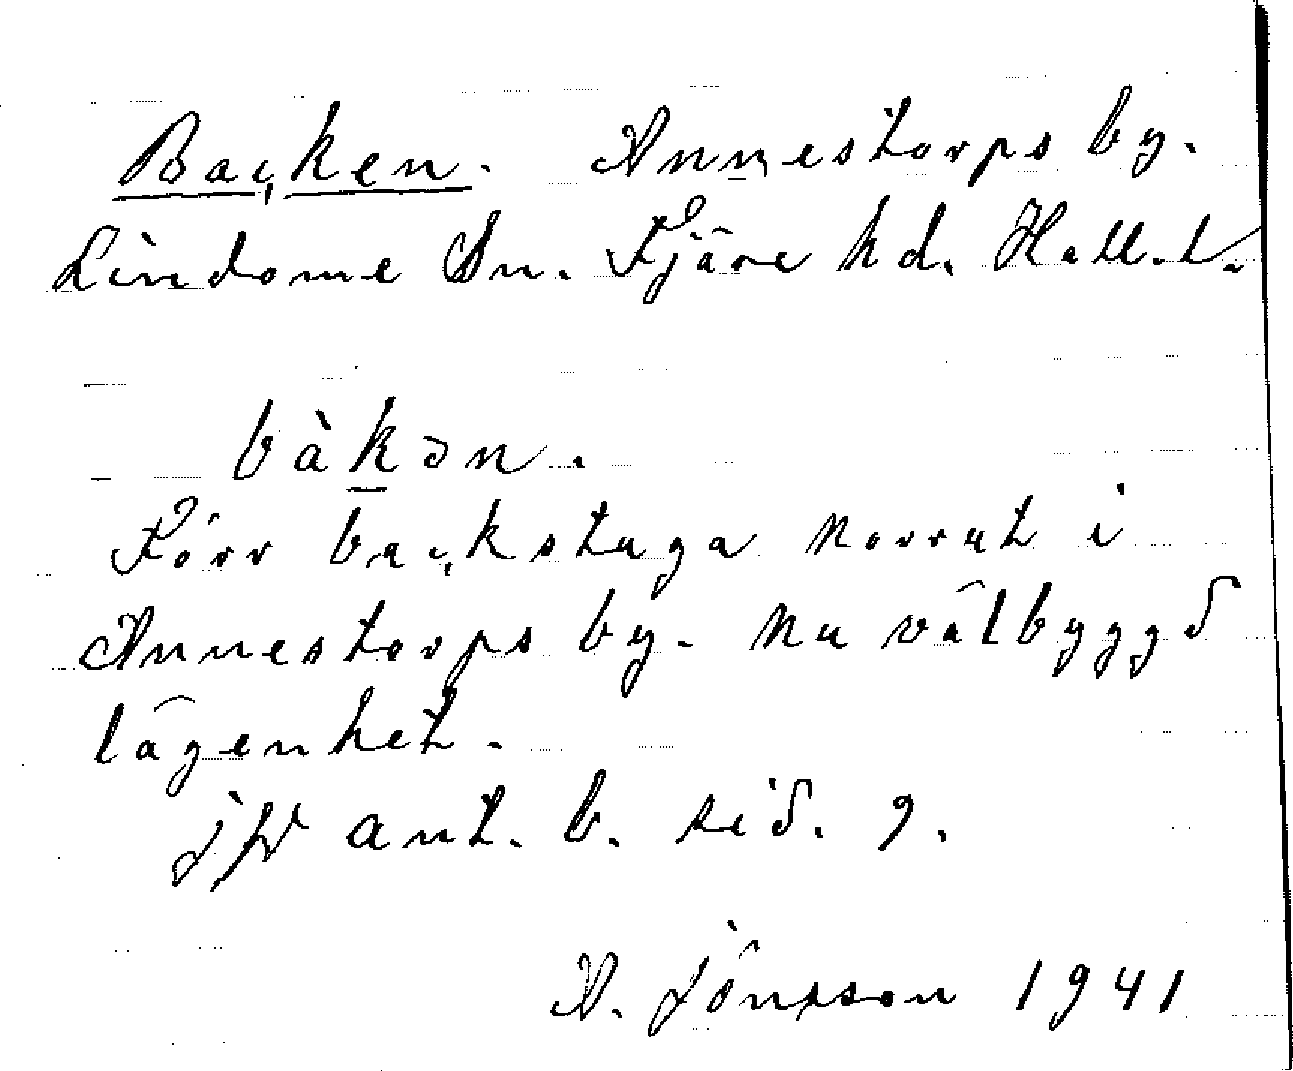 Backen. Annestorps by.
Lindome Sn. Fjäre hd. Hall. L.
bàkən.
Förr backstuga norrut i
Annestorps by. Nu välbyggd
lägenhet.
jfr ant. b. sid. 9.
A. Jönsson 1941